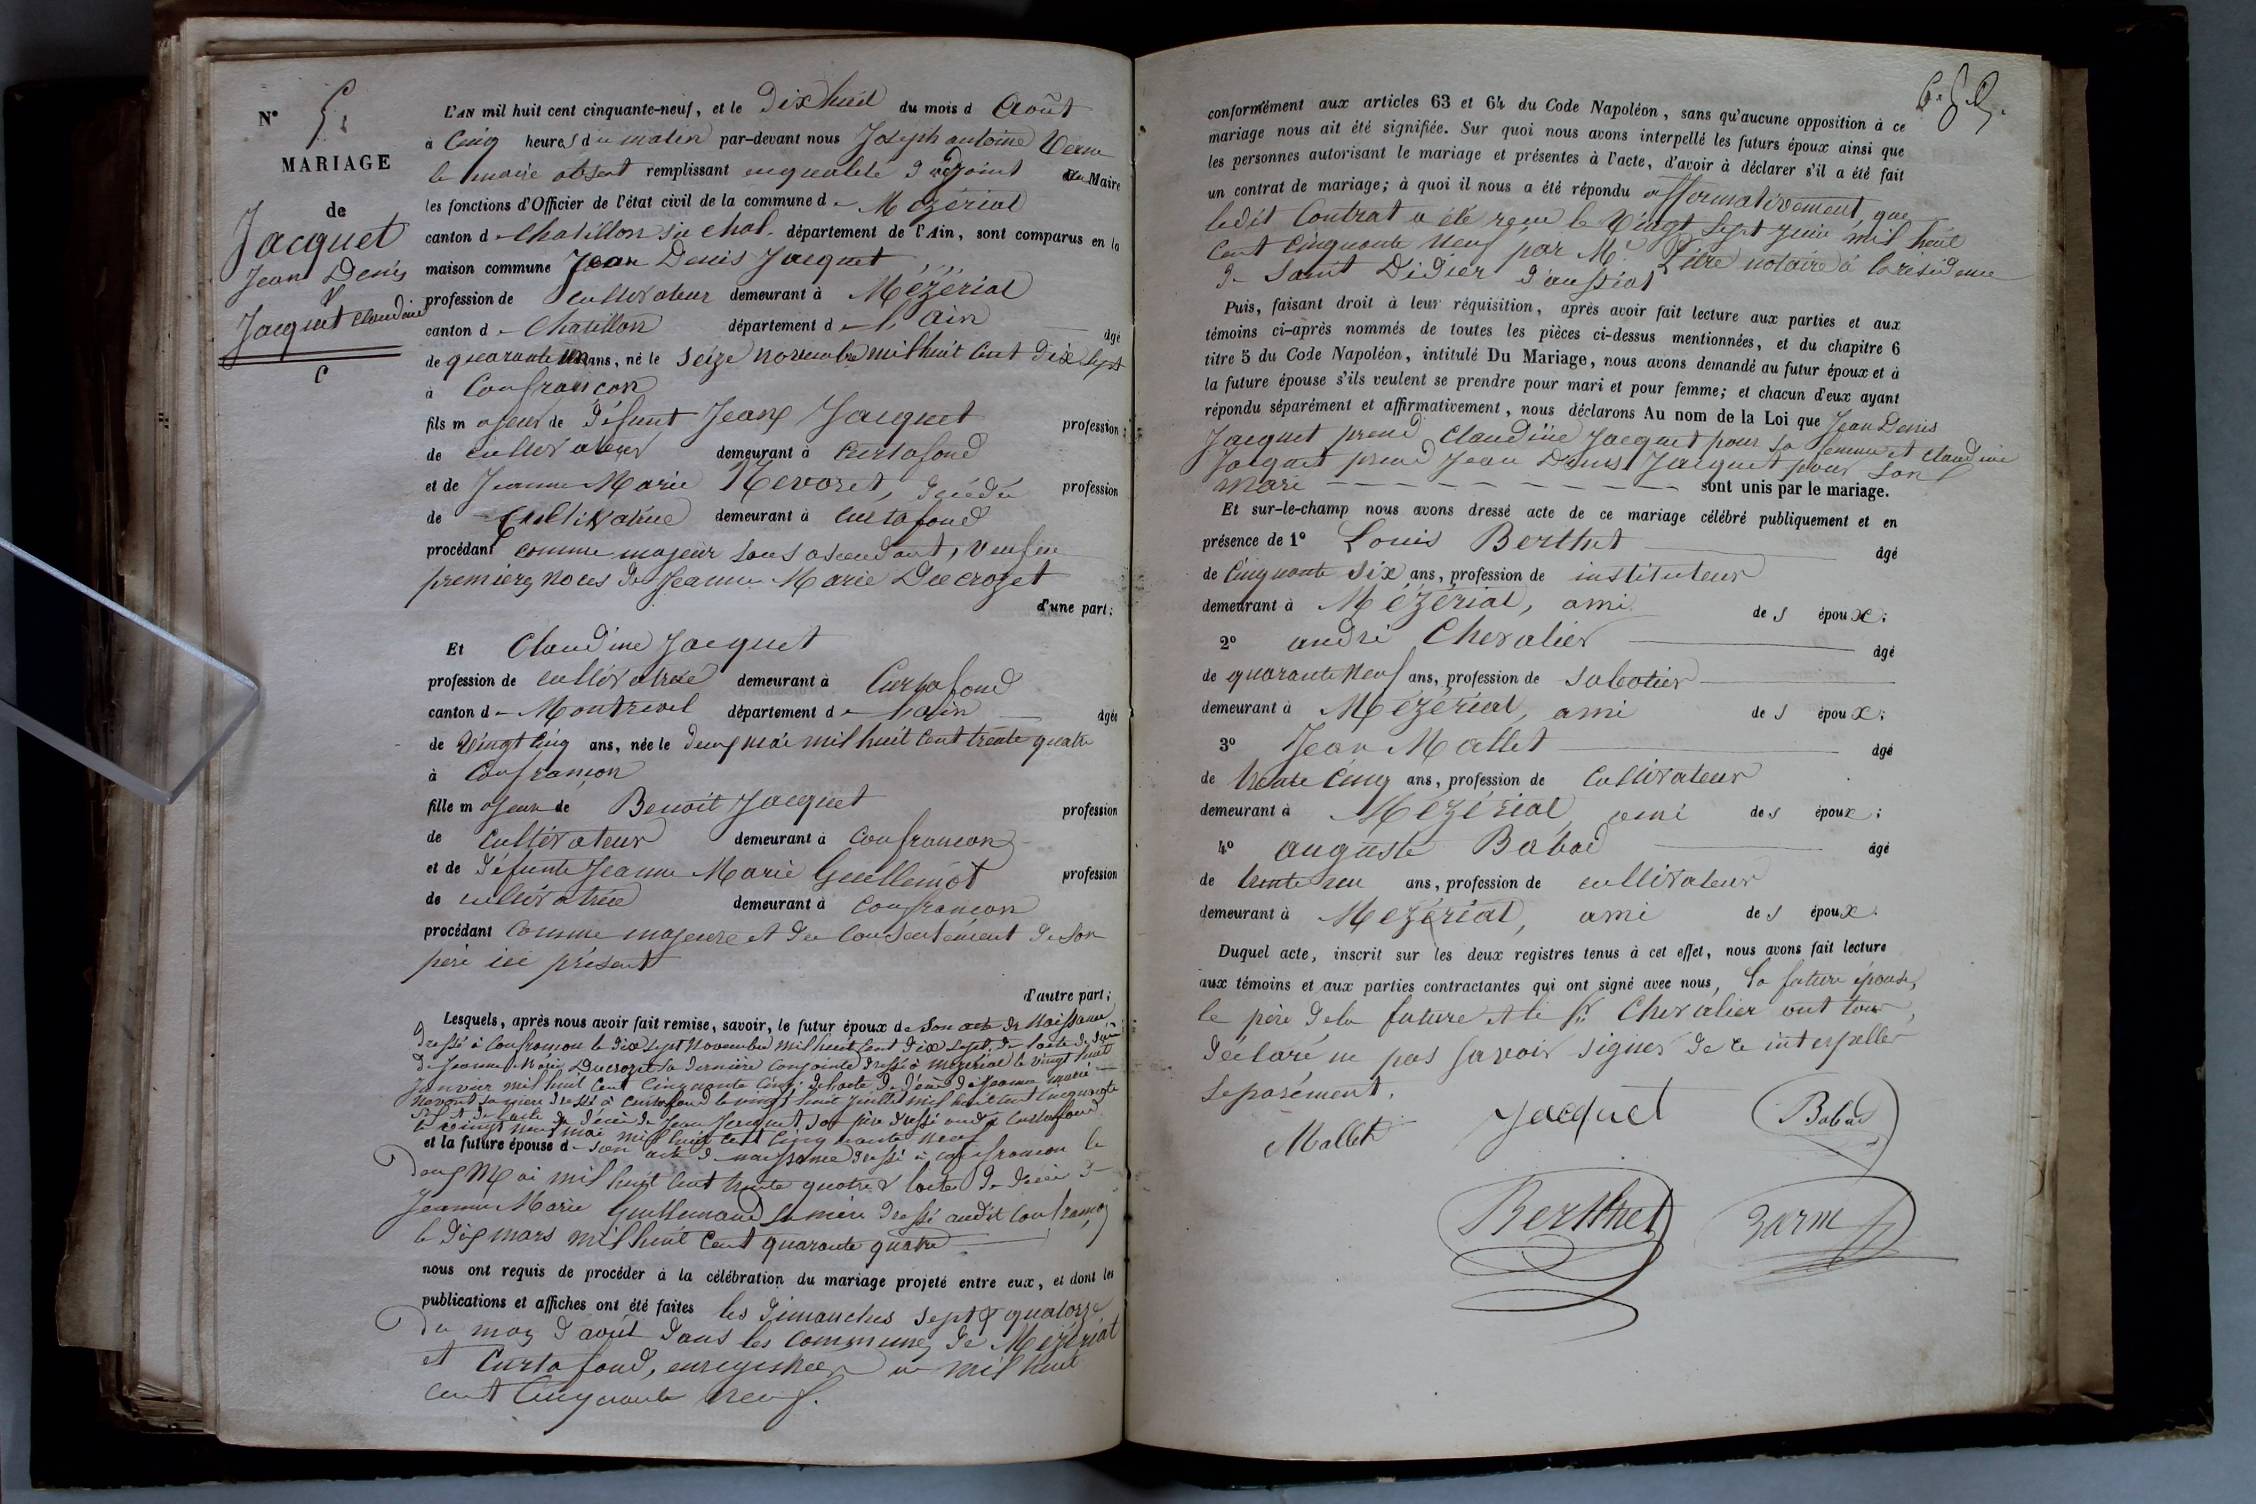 N° 5.
MARIAGE
de
Jacquet
Jean Denis
&
Jacquet Claudine
L'AN mil huit cent cinquante-neuf, et le dix huit du mois d Août
à Cinq heures du matin par-devant nous Joseph antoine
le maire absent remplissant en qualité d'adjoint au Maire
les fonctions d'Officier de l'état civil de la commune de Mézériat
canton de Chatillon sur chal. département de l'Ain, sont comparus en la
maison commune Jean Denis Jacquet
profession de cultivateur demeurant à Mézériat
canton de Chatillon département de l'Ain âgé
de quarante un ans, né le seize novembre mil huit cent dix sept
à Confrançon
fils majeur de défunt Jean Jacquet profession
de cultivateur demeurant à Curtafond
et de Jeanne Marie Nevoret, décédée profession
de Cultivatrice demeurant à curtafond
procédant comme majeur sans ascendant, veuf en
premières noces de Jeanne Marie Ducrozet
d'une part;
Et Claudine Jacquet
profession de cultivatrice demeurant à Curtafond
canton de Montrevel département de l'ain âgée
de vingt cinq ans, née le deux mai mil huit cent trente quatre
à Confrançon
fille majeure de Benoit Jacquet profession
de cultivateur demeurant à Confrançon
et de défunte Jeanne Marie Guillemot profession
de cultivatrice demeurant à Confrançon
procédant comme majeure et du consentement de son
père ici présent
d'autre part;
Lesquels, après nous avoir fait remise, savoir, le futur époux de son acte de naissance
dressé à Confrançon le dix sept novembre mil huit cent dix sept, de l'acte de décès
de Jeanne Marie Ducrozet sa dernière conjointe dressé à Mézériat le vingt huit
Janvier mil huit cent cinquante cinq, de l'acte de décès de Jeanne Marie
Nevoret sa mère dressé à Curtafond le vingt huit juillet mil huit cent cinquante
et de l'acte de décès de Jean Jacquet, son père dressé audit Curtafond
le vingt neuf mai mil huit cent cinquante neuf
et la future épouse de son acte de naissance dressé à Confrançon le
deux Mai mil huit cent trente quatre & l'acte de décès de
Jeanne Marie Guillemaud sa mère dressé audit Confrançon
le dix mars mil huit cent quarante quatre
nous ont requis de procéder à la célébration du mariage projeté entre eux, et dont les
publications et affiches ont été faites les dimanches sept & quatorze
du mois d'août dans les communes de Mézériat
et Curtafond, enregistrées mil huit
cent cinquante neuf.
conformément aux articles 63 et 64 du Code Napoléon, sans qu'aucune opposition à ce
mariage nous ait été signifiée. Sur quoi nous avons interpellé les futurs époux ainsi que
les personnes autorisant le mariage et présentes à l'acte, d'avoir à déclarer s'il a été fait
un contrat de mariage; à quoi il nous a été répondu affirmativement, que
ledit Contrat a été reçu le vingt sept juin mil huit
cent cinquante neuf par Me notaire à la résidence
de Saint Didier d'aussiat
Puis, faisant droit à leur réquisition, après avoir fait lecture aux parties et aux
témoins ci-après nommés de toutes les pièces ci-dessus mentionnées, et du chapitre 6
titre 5 du Code Napoléon, intitulé Du Mariage, nous avons demandé au futur époux et à
la future épouse s'ils veulent se prendre pour mari et pour femme; et chacun d'eux ayant
répondu séparément et affirmativement, nous déclarons Au nom de la Loi que Jean Denis
Jacquet prend Claudine Jacquet pour sa femme et Claudine
Jacquet prend Jean Denis Jacquet pour son
mari sont unis par le mariage.
Et sur-le-champ nous avons dressé acte de ce mariage célébré publiquement et en
présence de 1° Louis Berthet âgé
de cinquante six ans, profession de instituteur
demeurant à Mézériat, ami des époux;
2° andré Chevalier âgé
de quarante neuf ans, profession de sabotier
demeurant à Mézériat, ami des époux;
3° Jean Mallet âgé
de trente cinq ans, profession de cultivateur
demeurant à Mézériat, ami des époux;
4° auguste Babad âgé
de trente un ans, profession de cultivateur
demeurant à Mézériat, ami des époux.
Duquel acte, inscrit sur les deux registres tenus à cet effet, nous avons fait lecture
aux témoins et aux parties contractantes qui ont signé avec nous, la future épouse,
le père de la future et le Sr. Chevalier ont tous
déclaré ne pas savoir signer de ce interpellés
séparément.
Mallet Jacquet Babad
Berthet